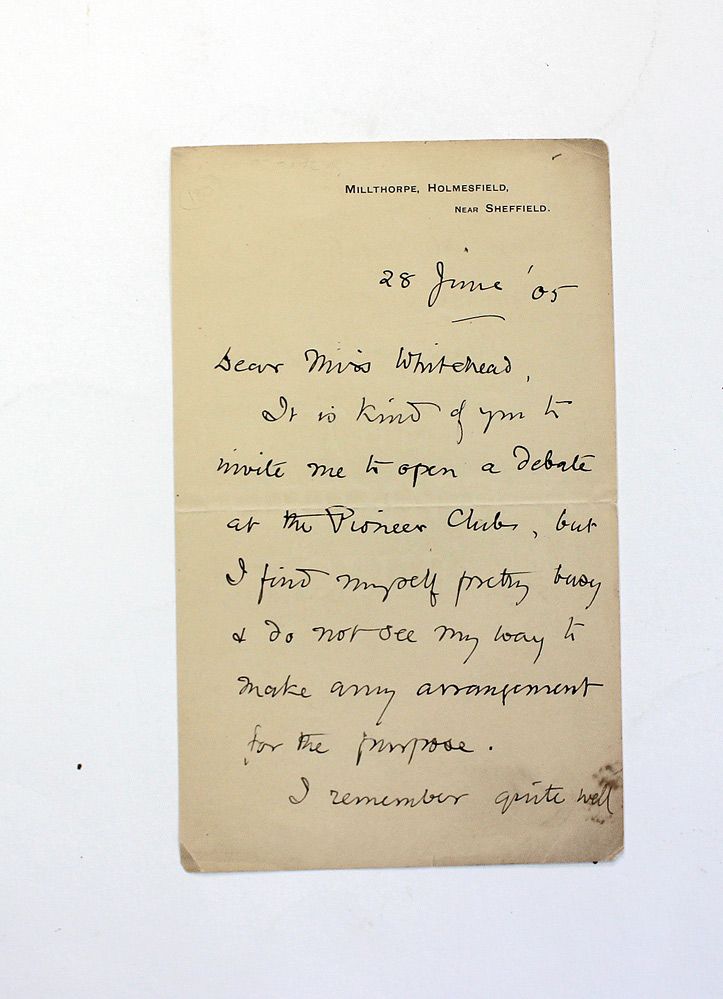 MILLTHORPE, HOLMESFIELD,
NEAR SHEFFIELD.
28 June '05
Dear Miss Whitehead,
It is kind of you to
invite me to open a debate
at the Pioneer Club, but
I find myself pretty busy
& do not see my way to
make any arrangement
for the purpose.
I remember quite well